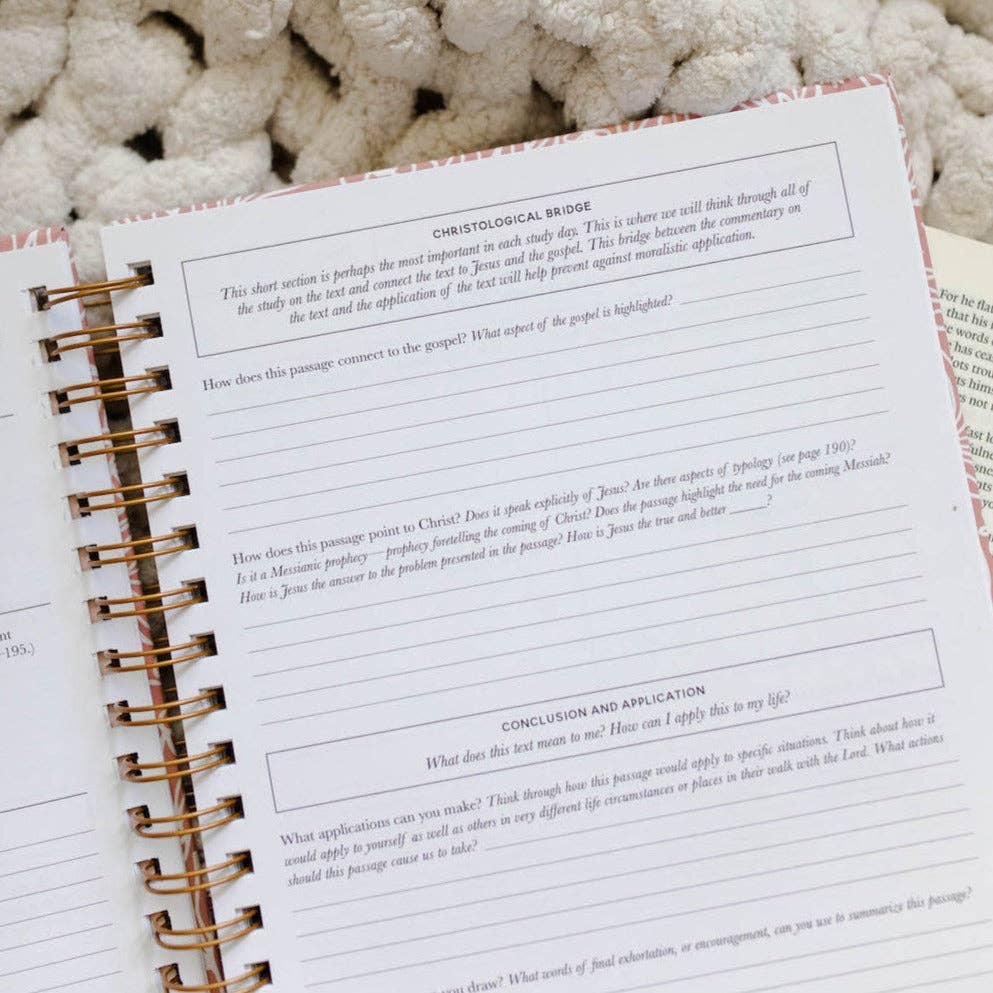 CHRISTOLOGICAL BRIDGE
This short section is perhaps the most important in each study day. This is where we will think through all of
the study on the text and connect the text to Jesus and the gospel. This bridge between the commentary on
the text and the application of the text will help prevent against moralistic application.
How does this passage connect to the gospel? What aspect of the gospel is highlighted?
How does this passage point to Christ? Does it speak explicitly of Jesus? Are there aspects of typology (see page 190)?
Is it a Messianic prophecy—prophecy foretelling the coming of Christ? Does the passage highlight the need for the coming Messiah?
How is Jesus the answer to the problem presented in the passage? How is Jesus the true and better ______?
CONCLUSION AND APPLICATION
What does this text mean to me? How can I apply this to my life?
What applications can you make? Think through how this passage would apply to specific situations. Think about how it
would apply to yourself as well as others in very different life circumstances or places in their walk with the Lord. What actions
should this passage cause us to take?
you draw? What words of final exhortation, or encouragement, can you use to summarize this passage?
-195.)
For he
that his
words
has